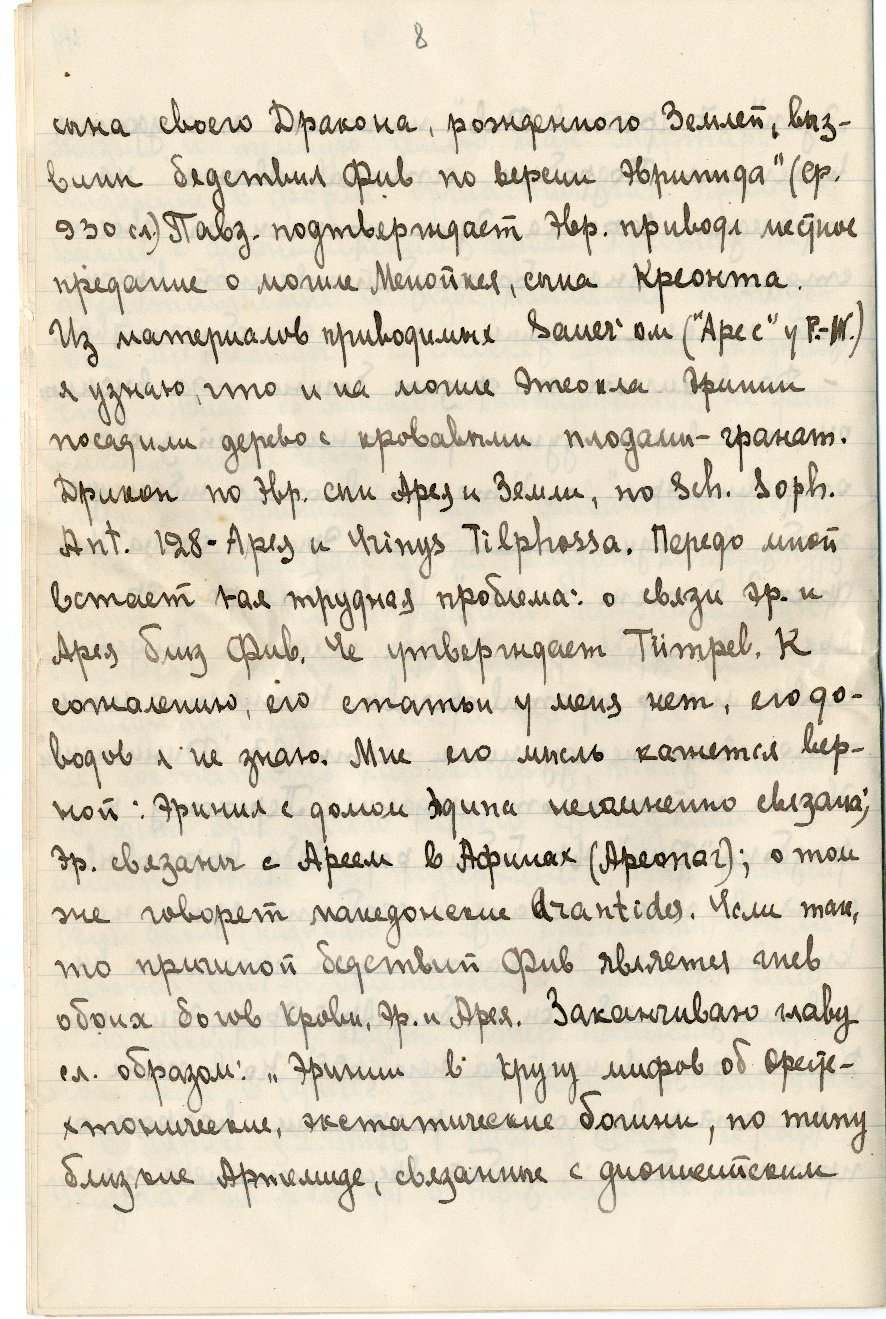 8
сына своего Дракона, рожденного Землей, выз-
вший бедствия Фив по версии Эврипида" (ср.
930 сл.) Павз. подтверждает Эвр. приводя местное
предание о могиле Менойкея, сына Креонта.
Из материалов приводимых Sauer'ом ("Арес" у P.-W.)
я узнаю, что и на могиле Этеокла Эринии
посадили дерево с кровавыми плодами - гранат.
Дракон по Эвр. сын Арея и Земли, по Sch. Soph.
Ant. 128 - Арея и Erinys Tilphossa. Передо мной
встает трудная проблема: о связи Эр. и
Арея близ Фив. Ее утверждает Tümpel. К
сожалению, его статьи у меня нет, его до-
водов я не знаю. Мне его мысль кажется вер-
ной: Эриния с домом Эдипа несомненно связана;
Эр. связаны с Ареем в Афинах (Ареопаг); о том
же говорят македонские Arantides. Если так,
то причиной бедствий Фив является гнев
обоих богов крови, Эр. и Арея. Заканчиваю главу
сл. образом: „Эринии в кругу мифов об Оресте-
хтонические, экстатические богини, по типу
близкие Артемиде, связанные с дионисийским